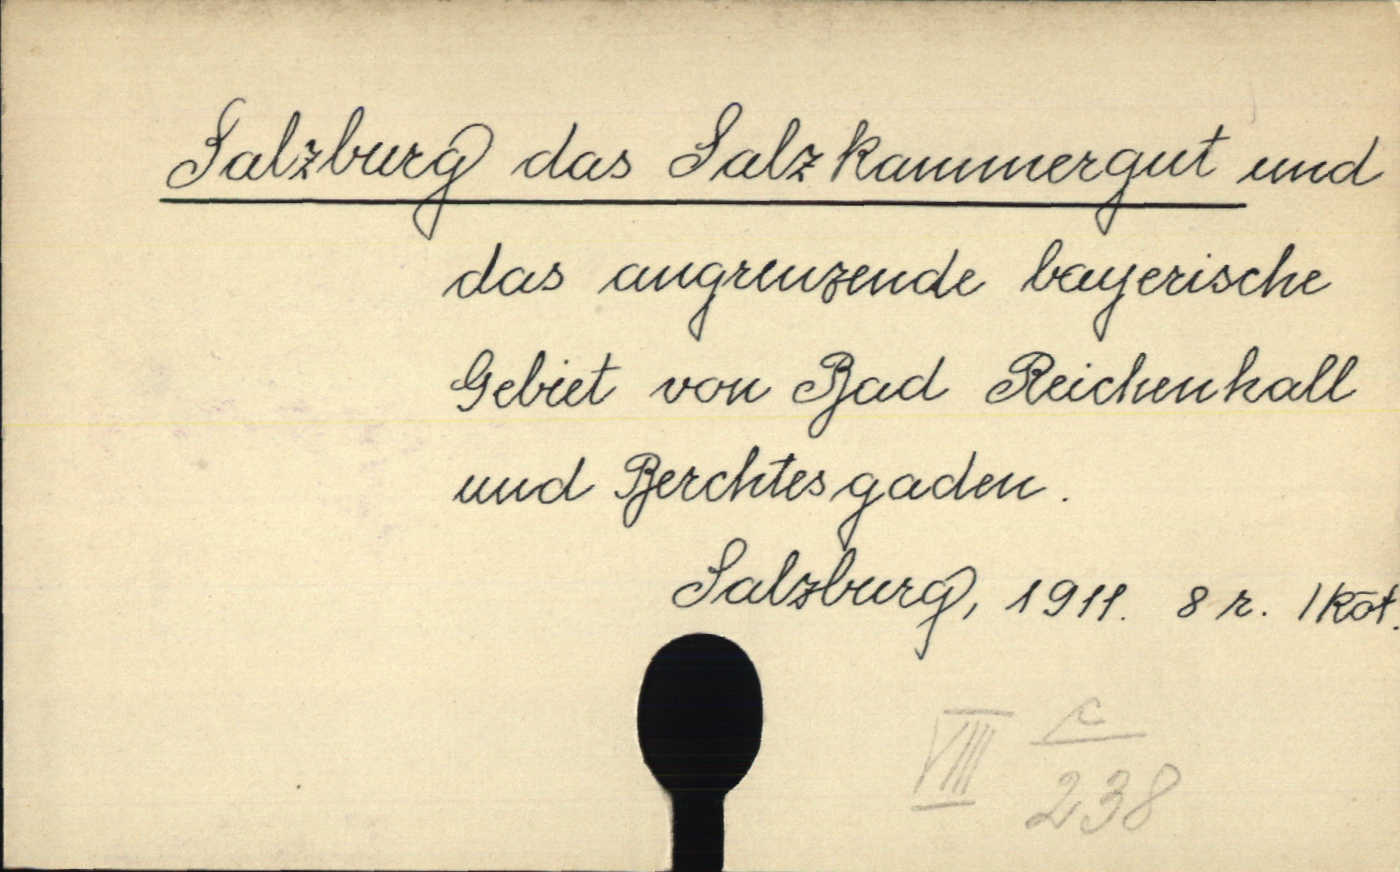 Salzburg das Salzkammergut und
das angrenzende bayerische
Gebiet von Bad Reichenhall
und Berchtesgaden.
Salzburg, 1911. 8 r. 1 köt.
VIIII c
238